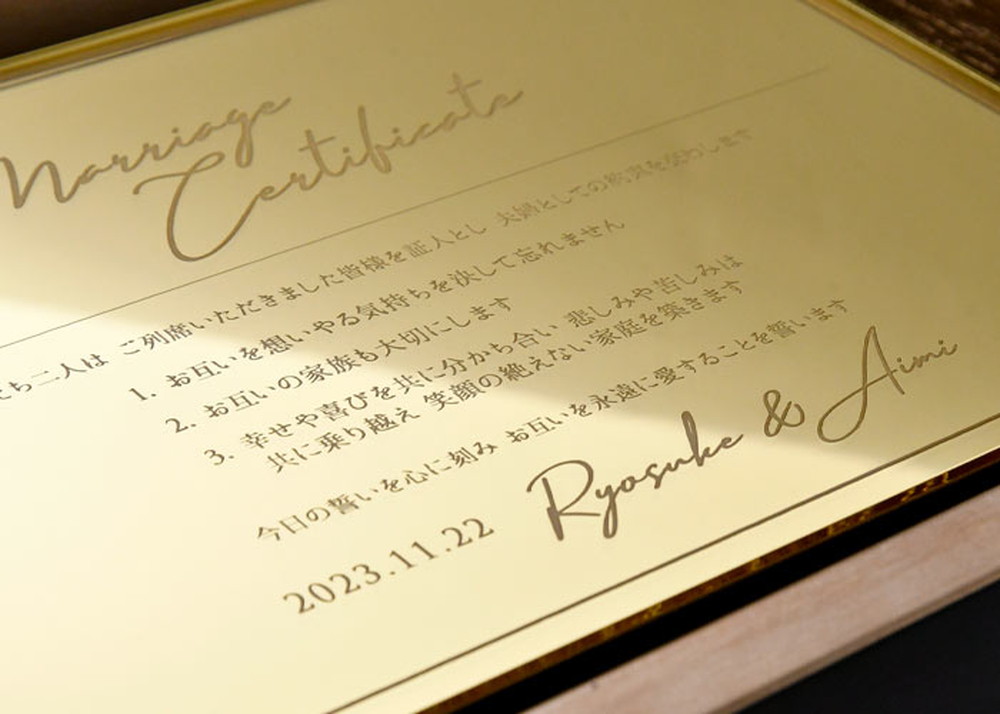 Marriage
Certificate
たち二人は ご列席いただきました皆様を証人とし 夫婦としての
1. お互いを想いやる気持ちを決して忘れません
2. お互いの家族も大切にします
3. 幸せや喜びを共に分かち合い 悲しみや苦しみは
共に乗り越え 笑顔の絶えない家庭を築きます
今日の誓いを心に刻み お互いを永遠に愛することを誓います
2023.11.22
Ryosuke & Aimi